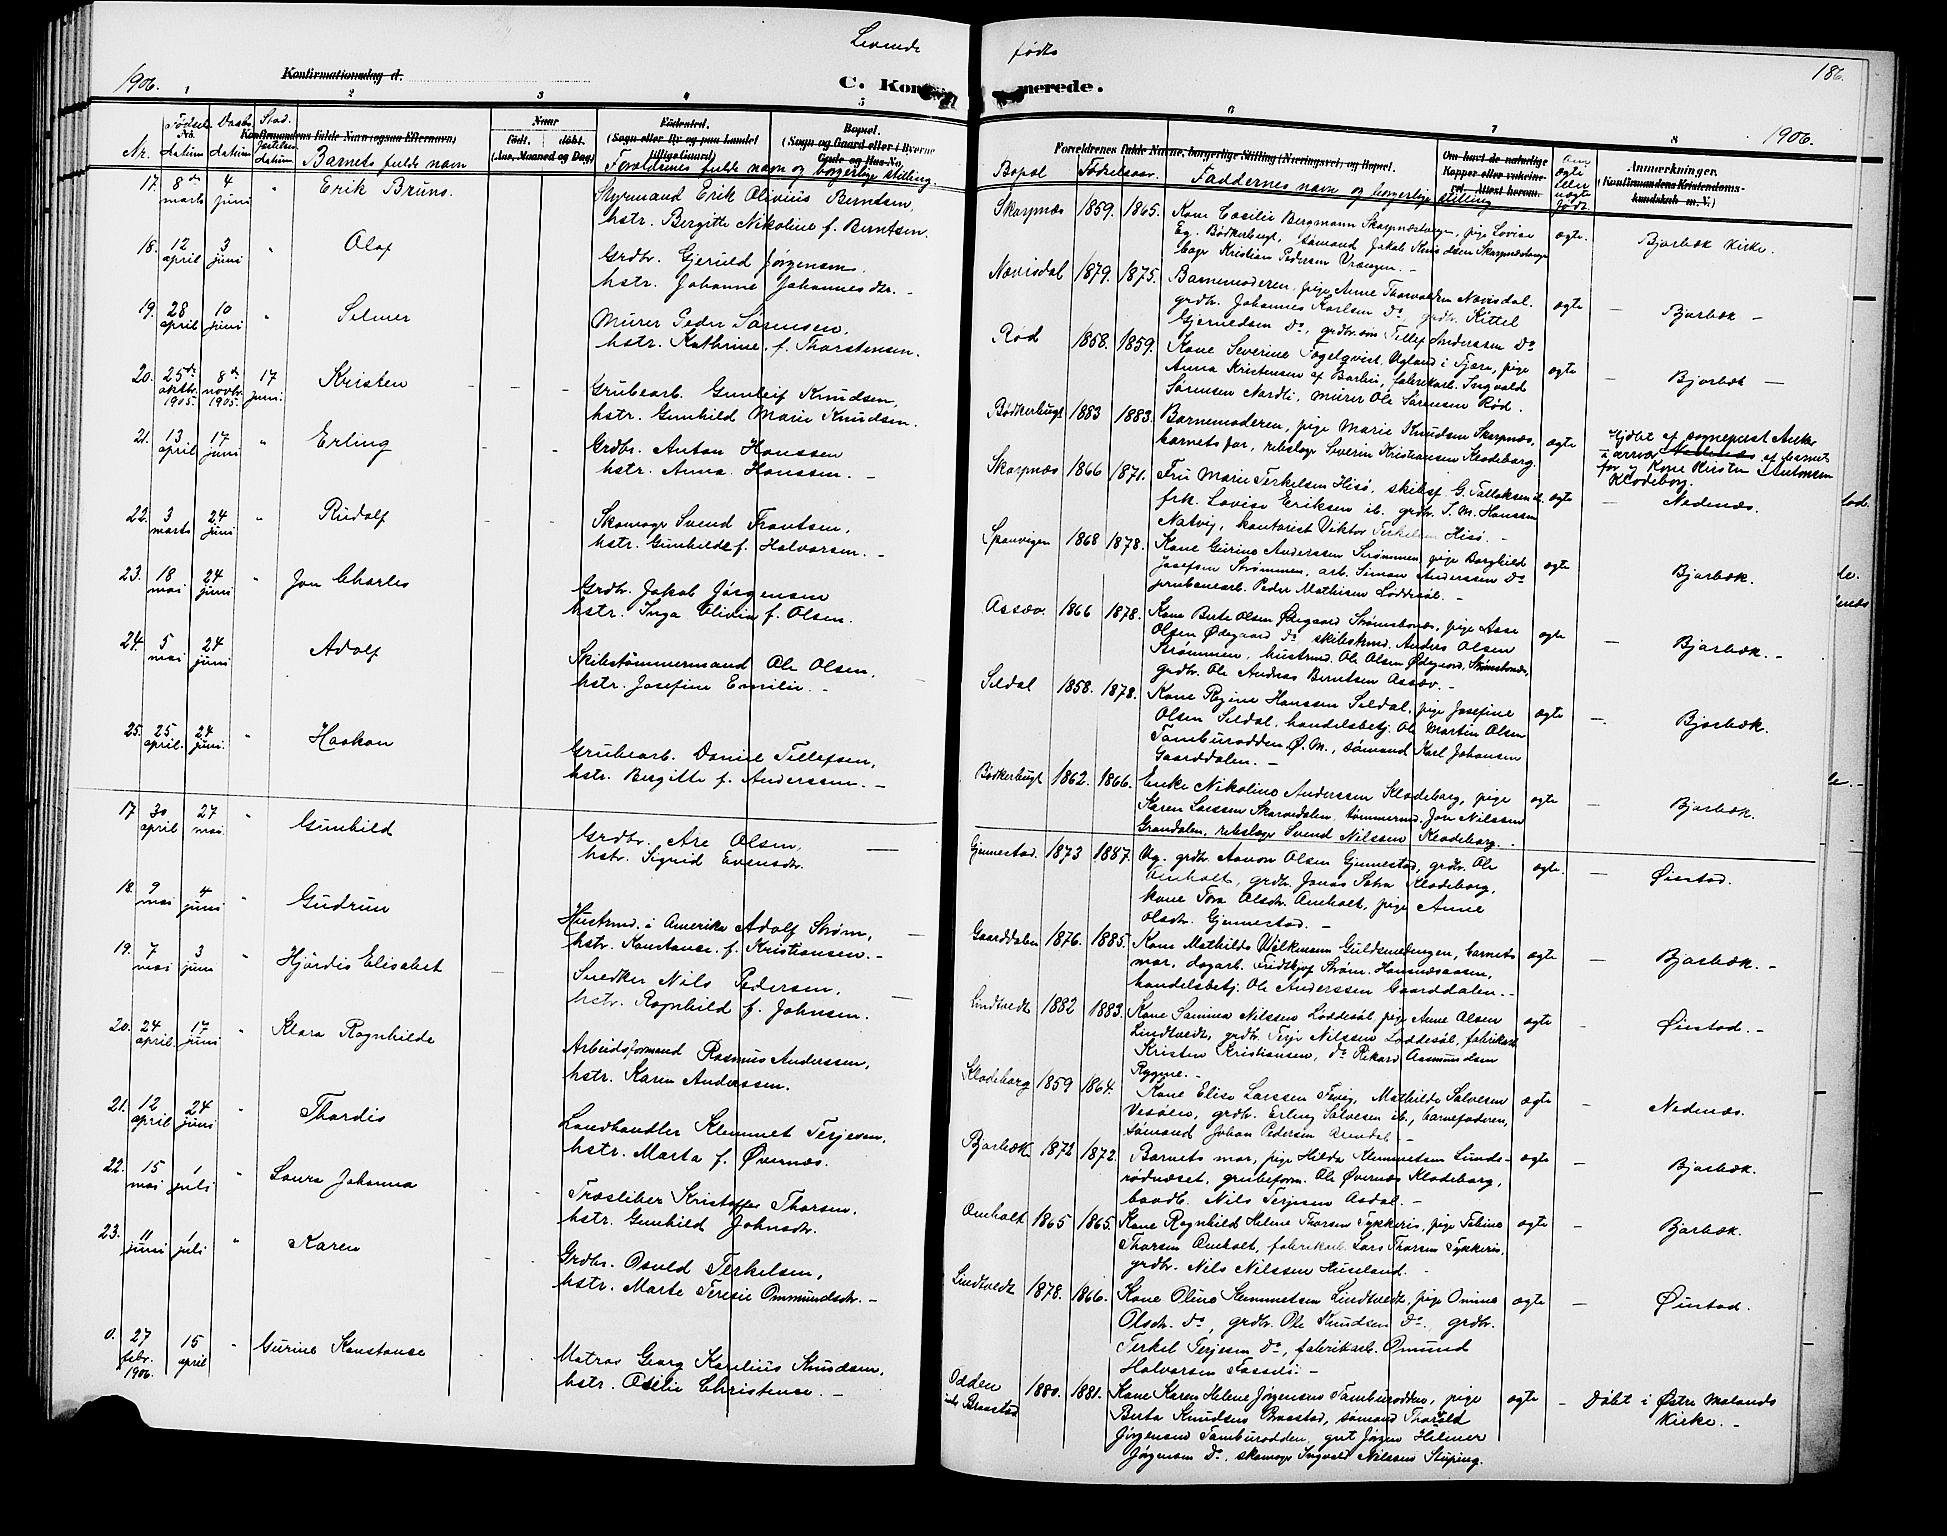 Levende fødte
186.
1906.
Konfirmationsdag d.
C. Kon merede.
1906.
1 2 3 4 5 6 7 8
Nr.
Fødsels datum
Daabs datum
Stad. festelses datum
Konfirmandens fulde Navn (ogsaa Efternavn)
Barnets fulde navn
Naar
født. døbt.
(Aar, Maaned og Dag)
Fødested.
(Sogn eller By og paa Landet tillige Gaard)
Bopæl.
(Sogn og Gaard eller i Byerne Gade og Hus-No.
Forældrenes fulde navn og borgerlige stilling
Forældrenes fulde Navne, borgerlige Stilling (Næringsvei) og Bopæl.
Bopæl Fødselsaar. Faddernes navn og borgerlige stilling
Om havt de naturlige Kopper eller vaksineret. Attest herom.
Om ægte eller uægte født.
Anmerkninger.
(Konfirmandens Kristendomskundskab m. V.)
17. 8de marts 4 juni " Erik Bruns.
Styrmand Erik Olivius Berntsen,
hstr. Bergitte Nikoline f. Berntsen.
Skarpnæs 1859. 1865. Kone Cæsilie Bergmann Skarpnæstangen, pige Lovise
Eg. Bødkerbugt, sømand Jakob Knudsen Skarpnæstangen
bager Kristian Pedersen Vrængen. –
ægte. Bjorbæk Kirke.
18. 12 april 3 juni " Olaf
Grdbr. Gjeruld Jørgensen
hstr. Johanne Johannesdtr. –
Nævisdal 1879. 1875. Barnemoderen, pige Anne Thorvaldsen Nævisdal.
grdbr. Johannes Karlsen Do, grdbr. Kittel
Gjeruldsen Do, grdbr.søn Tellef Anderssen Do
ægte – Bjorbæk –
19. 28 april 10 juni " Selmer
Murer Peder Sørensen,
hstr. Kathrine f. Thorstensen.
Rød 1858. 1859. Kone Severine Fogelqvist Ugland i Fjære, pige
Anna Kristensen af Barbu, fabrikarb. Ingvald
Sørensen Nordli, murer Ole Sørensen Rød.
ægte – Bjorbæk –
20. 25de oktbr. 1905. 8de novbr. 1905. 17 juni. Kristen
Grubearb. Gunleif Knudsen,
hstr. Gunhild Marie Knudsen.
Bødkerbugt 1883 1883. Barnemoderen, pige Marie Knudsen Skarpnæs,
barnets far, rebslager Severin Kristiansen Klodeborg.
ægte Hjdøbt af sogneprest Anker
i nærvær af barnets
far og Kone Kristen Antonsen
Klodeborg.
21. 13 april 17 juni " Erling
Grdbr. Anton Hanssen
hstr. Anna Hanssen –
Skarpnæs 1866 1871. Fru Marie Terkelsen Hisø, skibsf. G. Tallaksen ib.
frk. Lovise Eriksen ib. grdbr. T. M. Hanssen
Natvig, kontorist Viktor Terkelsen Hisø. –
ægte – Nedenæs.
22. 3 marts 24 juni " Rudolf
Skomager Svend Frantsen,
hstr. Gunhilde f. Halvorsen. –
Spanvigen 1868 1878. Kone Gurine Anderssen Strømmen, pige Borghild
Josefsen Strømmen, arb. Simon Anderssen Do
grubearb. Peder Mathisen Løddesøl. –
ægte Bjorbæk.
23. 18 mai 24 juni " Jon Charles
Grdbr. Jakob Jørgensen
hstr. Inga Elidia f. Olsen.
Assæv. 1866 1878. Kone Berte Olsen Ødegaard Strømsbonæs, pige Asse
Olsen Ødegaard Do, skibstmd. Anders Olsen
Strømmen, hustrmd. Ole Olsen Ødegaard, Strømsbonæs,
grdbr. Ole Andreas Berntsen Assæv. –
ægte – Bjorbæk. –
24. 5 mai 24 juni Adolf
Skibstømmermand Ole Olsen,
hstr. Josefine Emilie. –
Seldal 1858. 1878. Kone Regine Hanssen Seldal, pige Josefine
Olsen Seldal, handelsbetj. Ole Martin Olsen
Tamburodden Ø. M., sømand Karl Johansen
Gaarddalen. –
ægte – Bjorbæk.
25. 25 april. 24 juni. " Haakon
Grubearb. Daniel Tellefsen,
hstr. Bergitte f. Anderssen. –
Bødkerbugt 1862. 1866. Enke Nikoline Anderssen Klodeborg, pige
Karen Larssen Skarvedalen, tømmermd. Jon Nilssen
Grændalen, rebslager Svend Nilssen Klodeborg. –
ægte – Bjorbæk.
17 30 april 27 mai. " Gunhild
Grdbr. Are Olsen,
hstr. Sigrid Evensdtr.
Gjennestad. 1873 1887. Ug. grdbr. Aavon Olsen Gjennestad, grdbr. Ole
Omholt, grdbr. Jonas Sætra Klodeborg,
kone Tora Olsdtr. Omholt, pige Anne
Olsdtr. Gjennestad. –
ægte. – Øiestad.
18. 9 mai 4 juni " Gudrun
Hustrmd. i Amerika Adolf Strøm,
hstr. Konstance f. Kristiansen. –
Gaarddalen 1876. 1885. Kone Mathilde Wølkmann Guldsmedengen, barnets
mor, dagarb. Fridthjof Strøm. Hansnæsaasen,
handelsbetj. Ole Anderssen Gaarddalen. –
ægte – Bjorbæk. –
19. 7 mai 3 juni " Hjørdis Elisabet
Snedker Nils Pedersen,
hstr. Ragnhild f. Johnsen.
Lindtveit 1882 1883. Kone Samina Nilssen Løddesøl, pige Anne Olsen
Lindtveit, grdbr. Terje Nilssen Løddesøl, fabrikarb.
Kristen Kristiansen, Do Rikard Aasmundsen
Rygene. –
ægte – Øiestad. –
20. 24 april. 17 juni " Klara Ragnhilde
Arbeidsformand Rasmus Anderssen,
hstr. Karen Anderssen.
Klodeborg 1859 1864. Kone Elise Larssen Fevig, Mathilde Salvesen
Vesøen, grdbr. Erling Salvesen ib., barnefaderen,
sømand Johan Pedersen Arendal –
ægte – Nedenæs.
21. 12 april 24 juni " Thordis
Landhandler Klemmet Terjesen,
hstr. Marta f. Øvernæs.
Bjorbæk 1872 1872. Barnets mor, pige Hilda Klemmetsen Lunde-
rødnæset, grubeform. Ole Øvernæs Klodeborg,
baadb. Nils Terjesen Asdal. –
ægte – Bjorbæk.
22. 15 mai 1 juli " Laura Johanna
Træsliber Kristoffer Thorsen,
hstr. Gunhild Johnsdtr.
Omholt 1865 1865. Kone Ragnhild Helene Thorsen Tykkeris, pige Tobine
Thorsen Omholt, fabrikarb. Lars Thorsen Tykkeris,
grdbr. Nils Nilssen Huseland. –
ægte – Bjorbæk.
23. 11 juni 1 juli " Karen
Grdbr. Osvld Terkelsen,
hstr. Marte Teresie Ommundsdtr. –
Lindtveit 1878. 1866. Kone Oline Klemmetsen Lindtveit, pige Omine
Olsdtr. Do, grdbr. Ole Knudsen Do, grdbr.
Terkel Terjesen Do, fabrikarb. Ømund
Halvorsen Fosseli –
ægte – Øiestad.
0. 27 febr. 1906. 15 april " Gurine Konstanse
Matros Georg Karelius Knudsen,
hstr. Oselie Christense. –
Odden Braastad 1880. 1881. Kone Karen Helene Jørgensen Tamburodden, pige
Berta Knudsens Braastad, sømand Thorald
Jørgensen Tamburodden, gut Jørgen Hilmer
Jørgensen Do, skomager Ingvald Nilssen Stuping.
ægte – Døbt i Østre Molands
Kirke. –